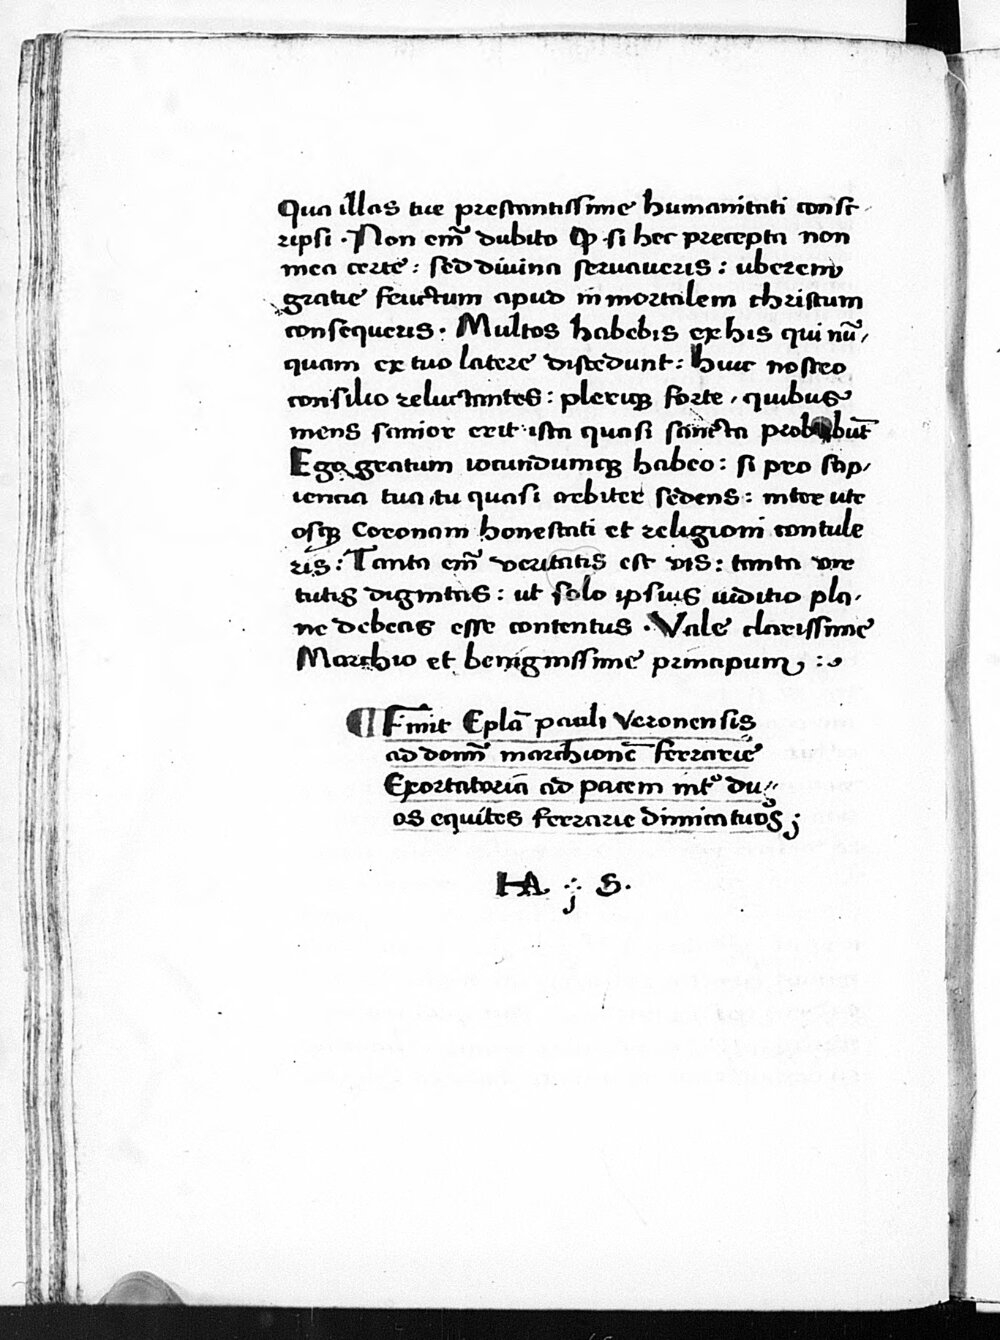 Qua illas tue prestantissime humanitati consc-
ripsi. Non em̃ dubito ꝙ si hec precepta non
mea certe: sed diuina seruaueris: uberem
gratie fructum apud inmortalem christum
consequeris. Multos habebis ex his qui nũ,
quam ex tuo latere discedunt: huic nostro
consilio reluctantes: pleriqꝫ forte, quibus
mens sanior erit ista quasi sancta probabũt
Ego gratum iocundumqꝫ habeo: si pro sap,
iencia tua, tu quasi arbiter sedens: inter utr
osqꝫ Coronam honestati et religioni contule
ris: Tanta em̃ ueritatis est uis: tanta uir
tutis dignitas: ut solo ipsius iuditio pla,
ne debeas esse contentus. Vale clarissime
Marchio et benignissime principum:
¶ Finit Eplã pauli Veronensis
ad domñ marchionẽ ferrarie
Exortatoriã ad pacem intᵒ du,,
os equites ferrarie dimicatuos;
HA ; S.